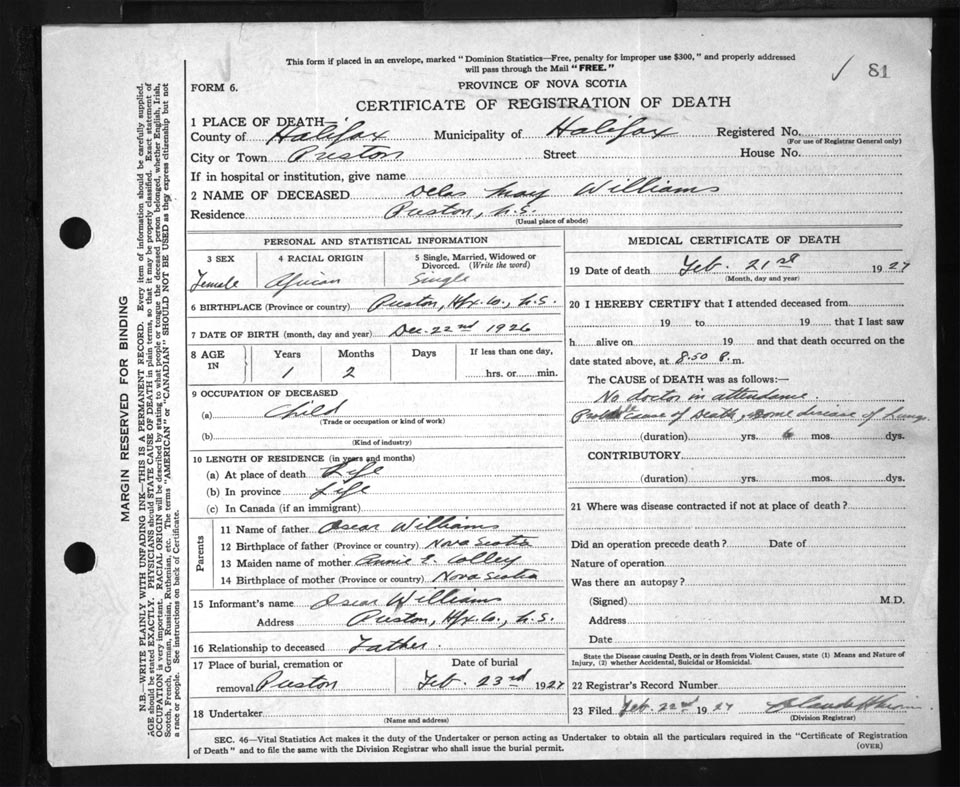 This form if placed in an envelope, marked "Dominion Statistics—Free, penalty for improper use $300," and properly addressed
will pass through the Mail "FREE."
✓ 81
FORM 6.
PROVINCE OF NOVA SCOTIA
CERTIFICATE OF REGISTRATION OF DEATH
1 PLACE OF DEATH—
County of Halifax Municipality of Halifax Registered No.
(For use of Registrar General only)
City or Town Preston Street House No.
If in hospital or institution, give name
2 NAME OF DECEASED Delas May Williams
Residence Preston, N.S.
(Usual place of abode)
PERSONAL AND STATISTICAL INFORMATION
3 SEX 4 RACIAL ORIGIN 5 Single, Married, Widowed or Divorced. (Write the word)
Female African Single
6 BIRTHPLACE (Province or country) Preston, Hfx. Co., N.S.
7 DATE OF BIRTH (month, day and year) Dec. 22nd 1926
8 AGE IN Years Months Days If less than one day,
1 2 hrs. or min.
9 OCCUPATION OF DECEASED
(a) Child
(Trade or occupation or kind of work)
(b)
(Kind of industry)
10 LENGTH OF RESIDENCE (in years and months)
(a) At place of death Life
(b) In province Life
(c) In Canada (if an immigrant)
Parents
11 Name of father Oscar Williams
12 Birthplace of father (Province or country) Nova Scotia
13 Maiden name of mother Annie E. Colley
14 Birthplace of mother (Province or country) Nova Scotia
15 Informant's name Oscar Williams
Address Preston, Hfx. Co., N.S.
16 Relationship to deceased Father.
17 Place of burial, cremation or Date of burial
removal Preston Feb. 23rd 1927
18 Undertaker
(Name and address)
MEDICAL CERTIFICATE OF DEATH
19 Date of death Feb. 21st 1927
(Month, day and year)
20 I HEREBY CERTIFY that I attended deceased from
19 to 19 that I last saw
h alive on 19 and that death occurred on the
date stated above, at 8.50 P. m.
The CAUSE OF DEATH was as follows:—
No doctor in attendence.
cause of Death, some disease of Lungs
(duration) yrs. 6 mos. dys.
CONTRIBUTORY
(duration) yrs. mos. dys.
21 Where was disease contracted if not at place of death?
Did an operation precede death? Date of
Nature of operation
Was there an autopsy?
(Signed) M.D.
Address
Date
State the Disease causing Death, or in death from Violent Causes, state (1) Means and Nature of
Injury, (2) whether Accidental, Suicidal or Homicidal.
22 Registrar's Record Number
23 Filed Feb. 22nd 1927
(Division Registrar)
SEC. 46—Vital Statistics Act makes it the duty of the Undertaker or person acting as Undertaker to obtain all the particulars required in the "Certificate of Registration
of Death" and to file the same with the Division Registrar who shall issue the burial permit.
(OVER)
MARGIN RESERVED FOR BINDING
N.B.—WRITE PLAINLY WITH UNFADING INK—THIS IS A PERMANENT RECORD. Every item of information should be carefully supplied.
AGE should be stated EXACTLY. PHYSICIANS should STATE CAUSE OF DEATH in plain terms, so that it may be properly classified. Exact statement of
OCCUPATION is very important. RACIAL ORIGIN will be described by stating to what people or tongue the deceased person belonged, whether English, Irish,
Scotch, French, German, Russian, Ruthenian, etc. The terms "AMERICAN" or "CANADIAN" SHOULD NOT BE USED as they express citizenship but not
a race or people. See instructions on back of Certificate.